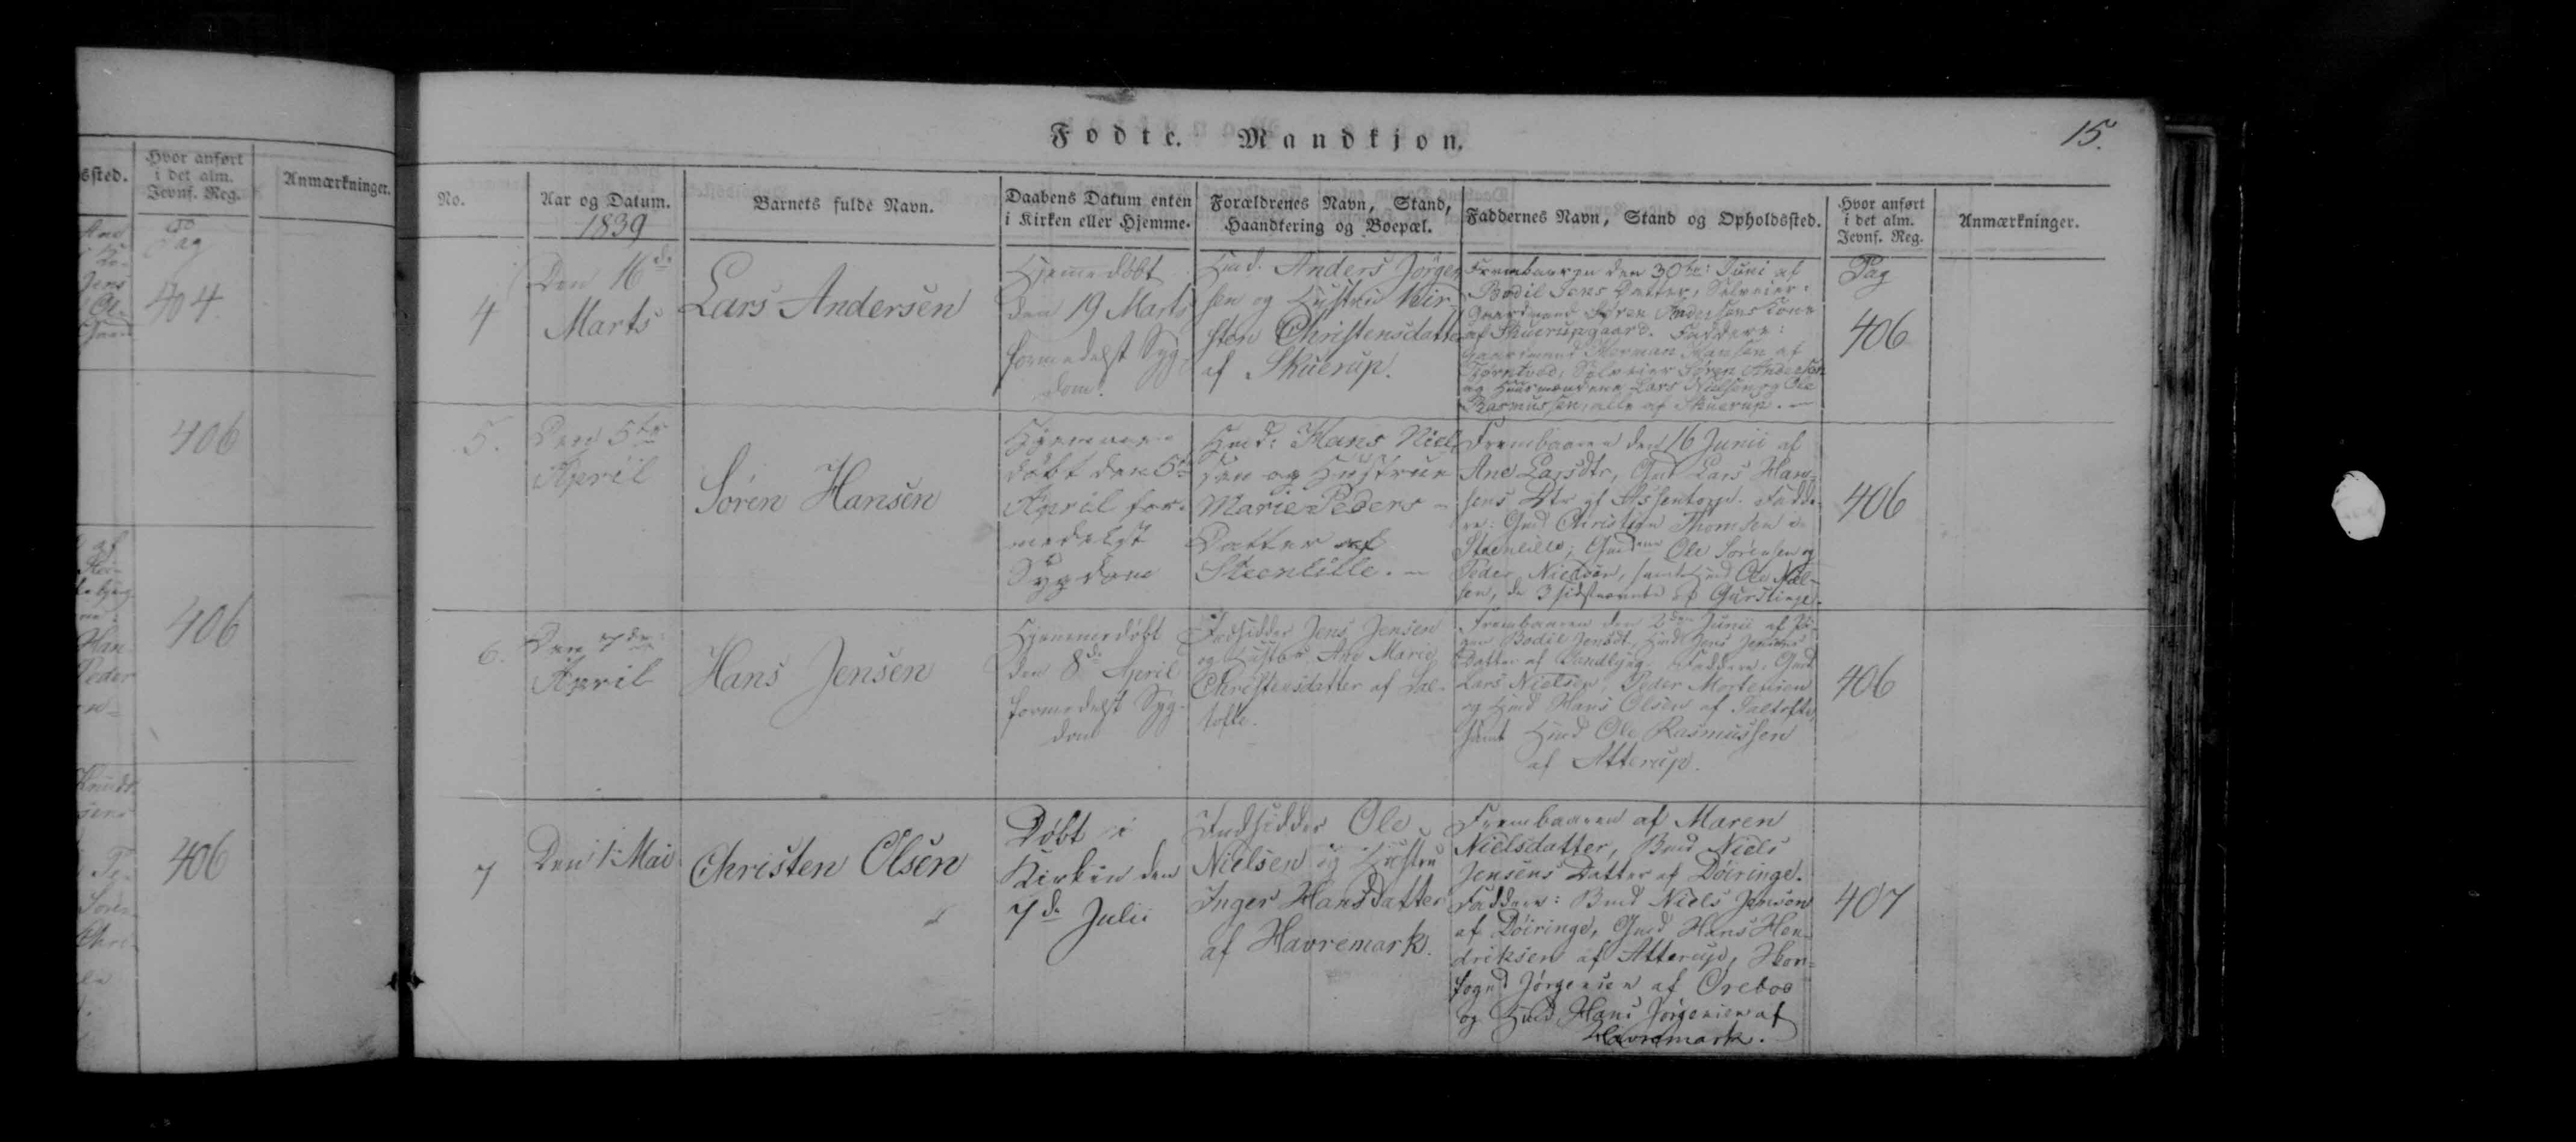 Fodte. Mandkjon.
15.
ssted.
Hvor anført
i det alm.
Jevnf. Reg.
Anmærkninger.
404
406
406
406
No.
Aar og Datum.
1839
Barnets fulde Navn.
Daabens Datum enten
i Kirken eller Hjemme.
Forældrenes Navn, Stand,
Haandtering og Boepæl.
Faddernes Navn, Stand og Opholdssted.
Hvor anført
i det alm.
Jevnf. Reg.
Anmærkninger.
4
Den 16de
Marts
Lars Andersen
Hjemmedøbt
den 19 Marts
formedelst Syg-
dom.
Huusmd. Anders Jørgen
sen og Hustru Kir-
sten Christensdatter
af Skuerup.
Frembaaren den 30te Juni af
Bodil Jens Datter, Selveier-
Gaardmand Søren Andersens Kone
af Skuerupgaard. Faddere:
Gaardmand Herman Hansen af
Tjorntved, Selveier Søren Andersen
og Huusmændene Lars Nielsen og Ole
Rasmussen, alle af Skuerup. —
Pag
406
5.
Den 5te
April
Søren Hansen
Hjemme-
døbt den 5te
April for-
medelst
Sygdom
Hmd: Hans Niel
sen og Hustrue
Marie Peders -
Datter af
Steenlille. —
Frembaaren den 16 Junii af
Ane Larsdtr, Gmd Lars Han-
sens Dtr af Assentorp. Fadde-
re: Gmd Christian Thomsen i
Steenlille; Gmdene Ole Sørensen og
Peder Nielsen, samt Hmd Ole Niel-
sen, de 3 sidstnævnte af
406
6.
Den 7de
April
Hans Jensen
Hjemmedøbt
den 8de April
formedelst Syg-
dom
Indsidder Jens Jensen
og Hustru Ane Marie
Christensdatter af Tal-
tofte.
Frembaaren den 2den Junii af Pi-
gen Bodil Jensdt, Hmd Jens Jensens
Datter af Faddere: Gmd
Lars Nielsen, Peder Mortensen
og Hmd Hans Olsen af Taltofte,
samt Hmd Ole Rasmussen
af Atterup.
406
7
Den 1 Mai
Christen Olsen
Døbt i
Kirken den
7de Julii
Indsidder Ole
Nielsen og Hustru
Inger Hansdatter
af Havremark.
Frembaaren af Maren
Nielsdatter, Bmd Niels
Jensens Datter af Døiringe.
Faddere: Bmd Niels Jensen
af Døiringe, Gmd Hans Hen-
driksen af Atterup,
fogud Jørgensen af Oreboe
og Hmd Hans Jørgensen af
Havremark.
407